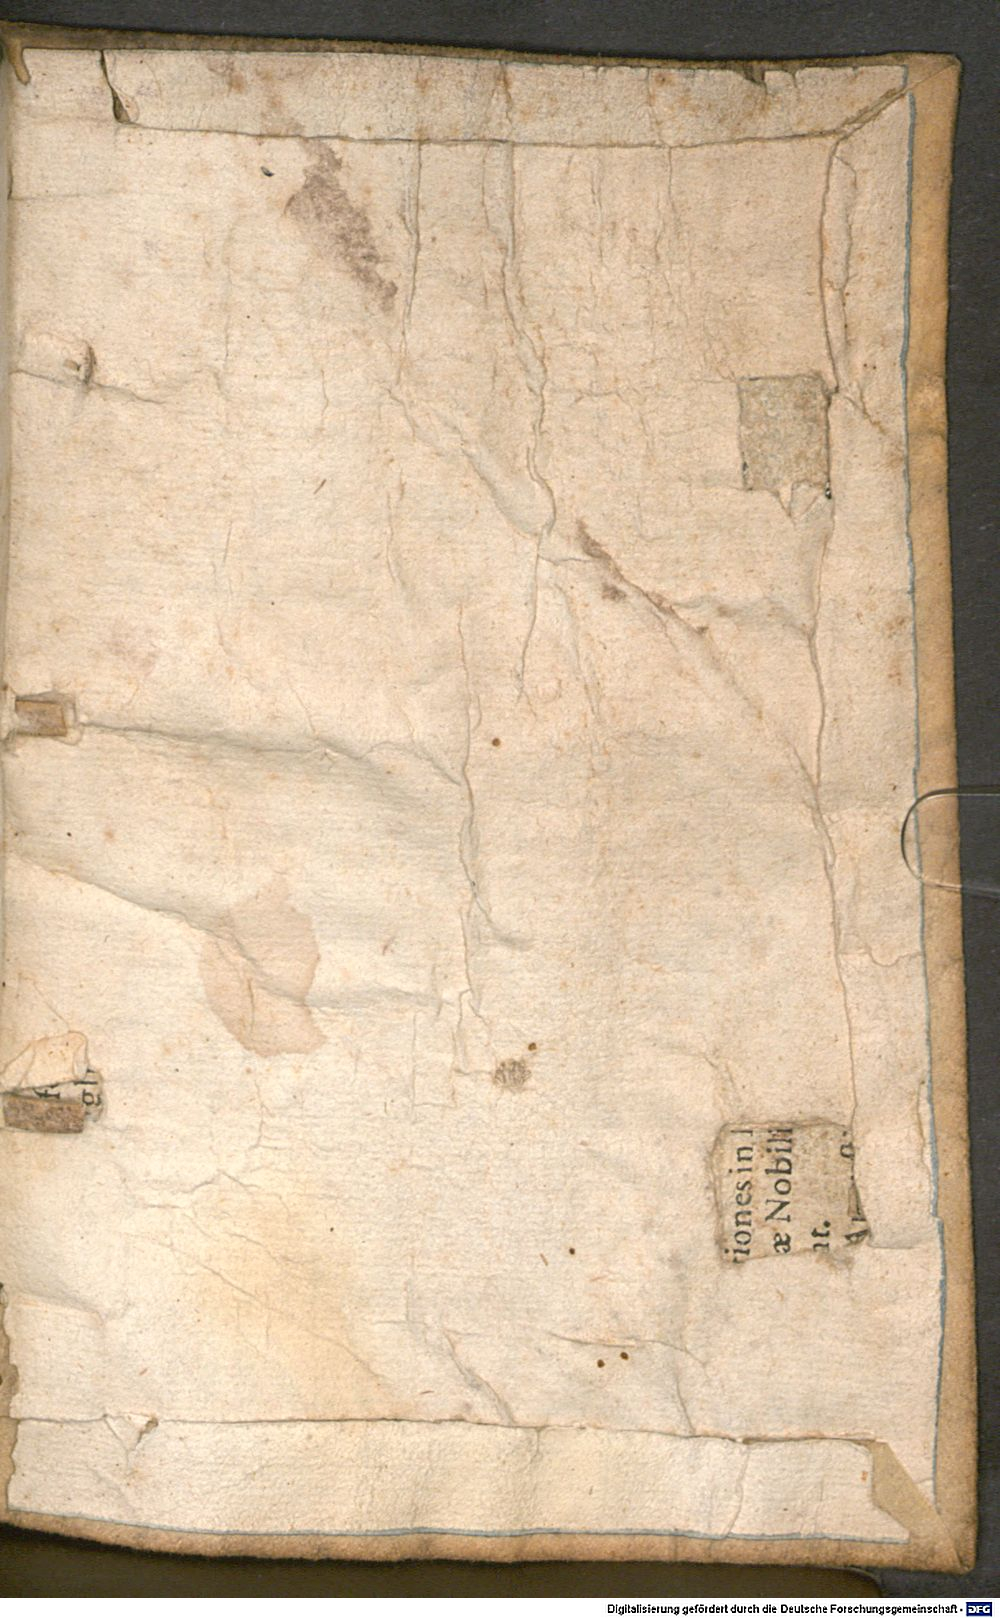 iones in
æ Nobili
Digitalisierung gefördert durch die Deutsche Forschungsgemeinschaft - DFG